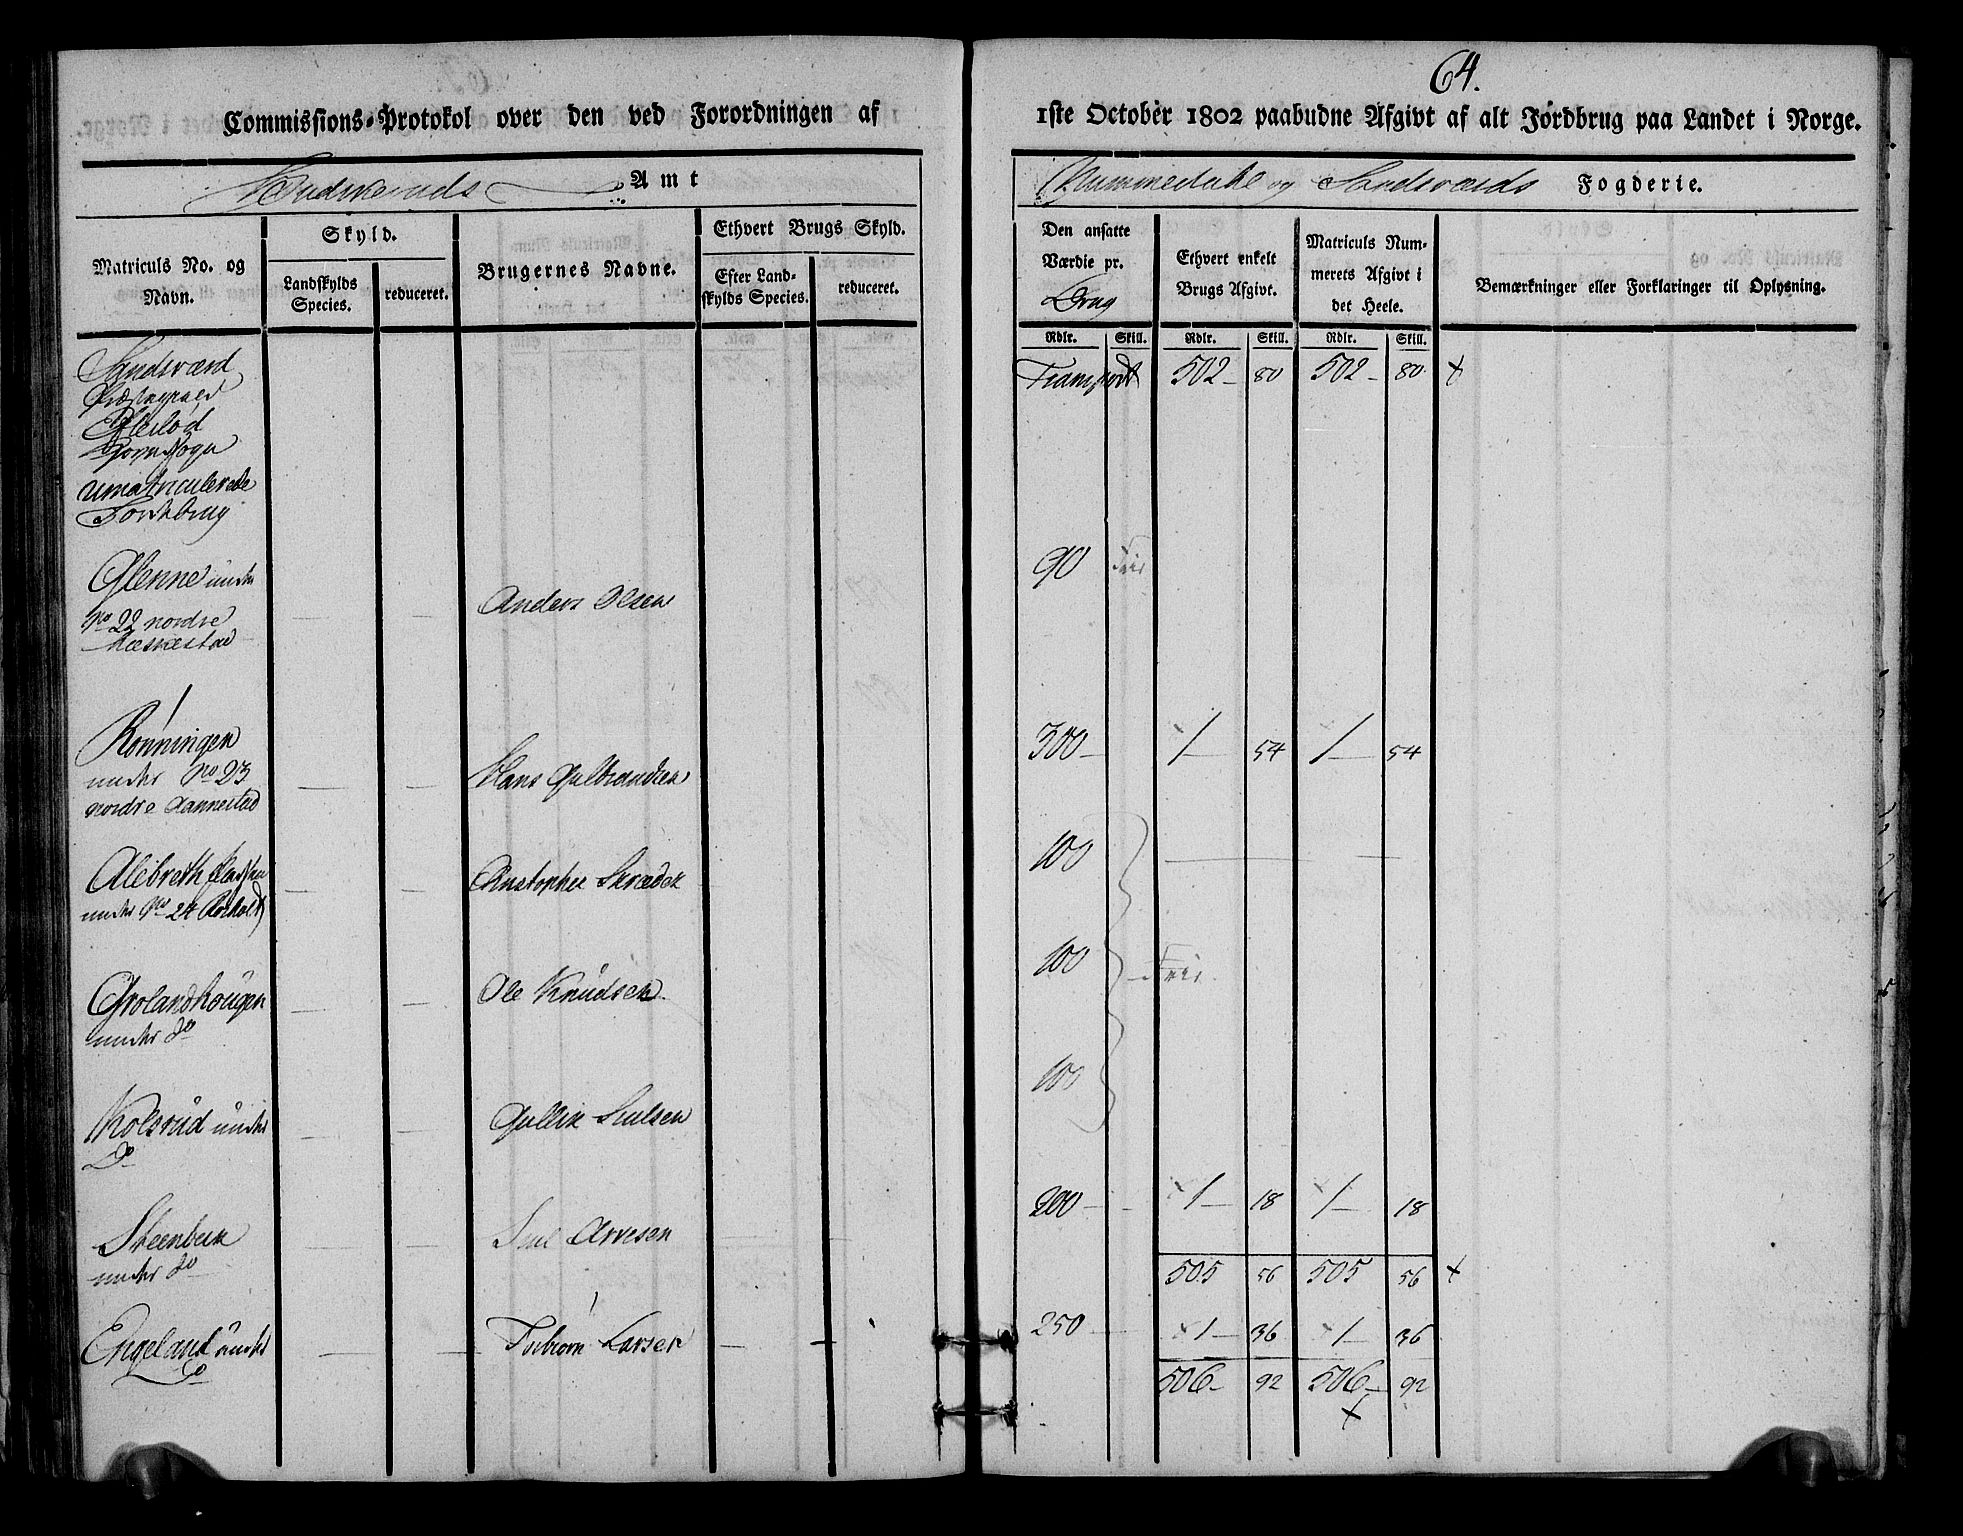 64.
Commissions-Protokol over den ved Forordningen af
1ste October 1802 paabudne Afgivt af alt Jordbrug paa Landet i Norge.
Buskeruds Amt
Nummedahl og Sandsværds Fogderie.
Matriculs No. og Navn.
Skyld.
Landskylds Species.
reduceret.
Brugernes Navne.
Ethvert Brugs Skyld.
Efter Landskylds Species.
reduceret.
Den ansatte Værdie pr. Brug
Ethvert enkelt Brugs Afgivt.
Matriculs Nummerets Afgivt i det Heele.
Bemærkninger eller Forklaringer til Oplysning.
Rdlr. Skill. Rdlr. Skill. Rdlr. Skill.
Sandsværd
Præstegield
Eftelød
Sogn
umatriculerede
Jordbrug
Transport 502 – 80 502 – 80 +
Glenne under
No 22 nordre
Anders Olsen
90 Frie
Rönningen
under No 23
nordre Aannestad
Hans Gulbrandsen
300 – 1 – 54 1 – 54
Alebreth
under No 24
Christopher Skræder
100
Grolandhougen
under do
Ole Knudsen
100 Frie
Kolsrud under
Do
Gullik
100
Steenbek
under do
Arvesen
200 – 1 – 18 1 – 18
505 56 505 56 +
Engeland under
Do
Torbiorn Larsen
250 1 – 36 1 – 36
506 – 92 506 – 92
+